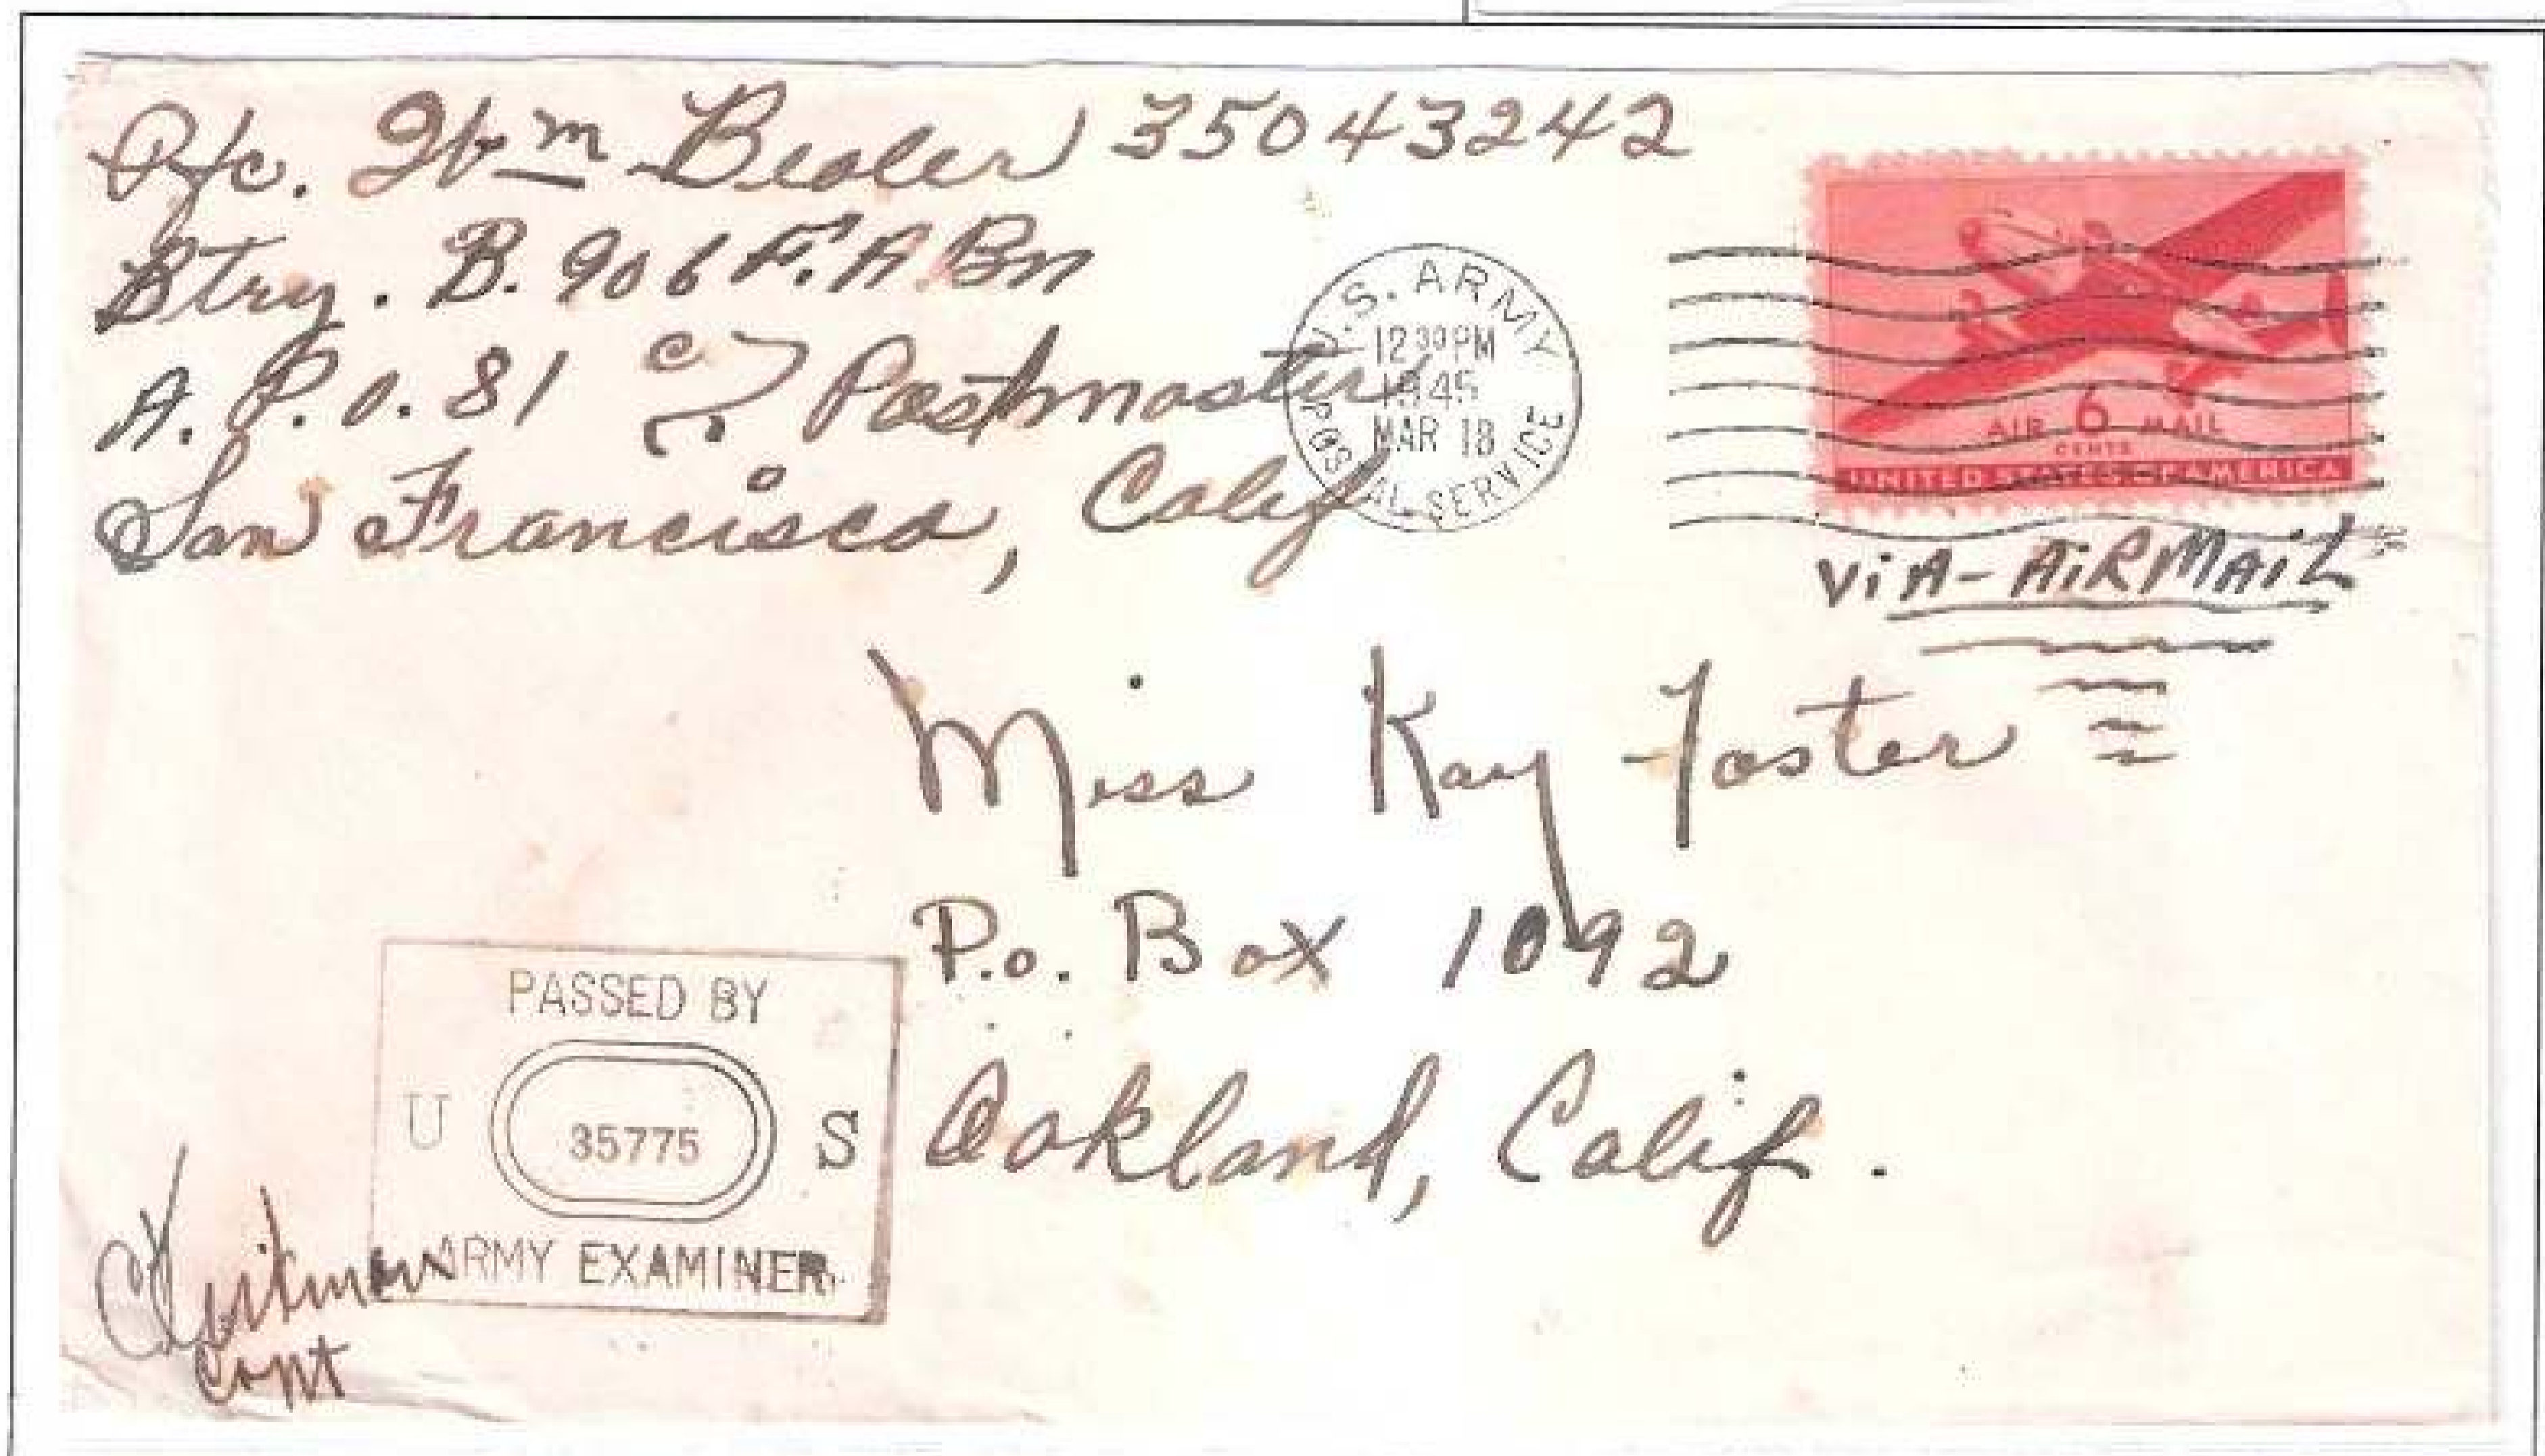 Pfc. Wm Beoler 35043242
Btry. B. 906 F.A Bn
A.P.O. 81 c/o Postmaster
San Francisco, Calif
U.S. ARMY
12 30 PM
1945
MAR 18
POSTAL SERVICE
AIR 6 MAIL
CENTS
UNITED STATES OF AMERICA
ViA-AiRMAiL
Miss Kay Foster
P.o. Box 1092
Oakland, Calif.
PASSED BY
U 35775 S
ARMY EXAMINER
Capt